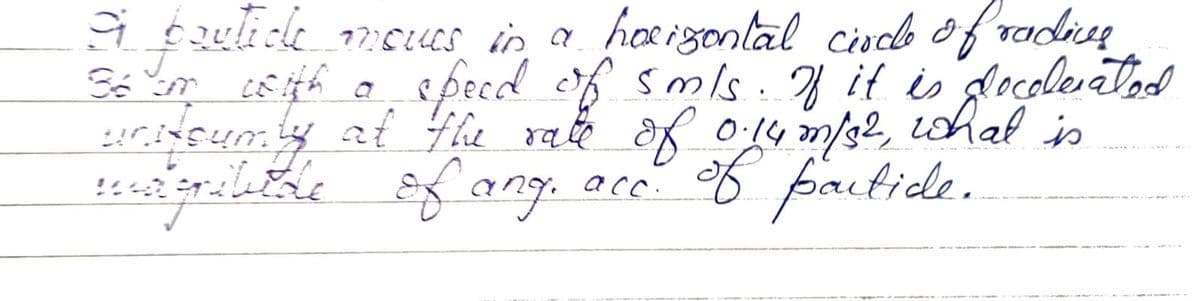 A particle moves in a horizontal circle of radius
36 cm with a speed of 5 m/s. If it is decelerated
uniformly at the rate of 0.14 m/s2, what is
magnitude of ang. acc. of particle.